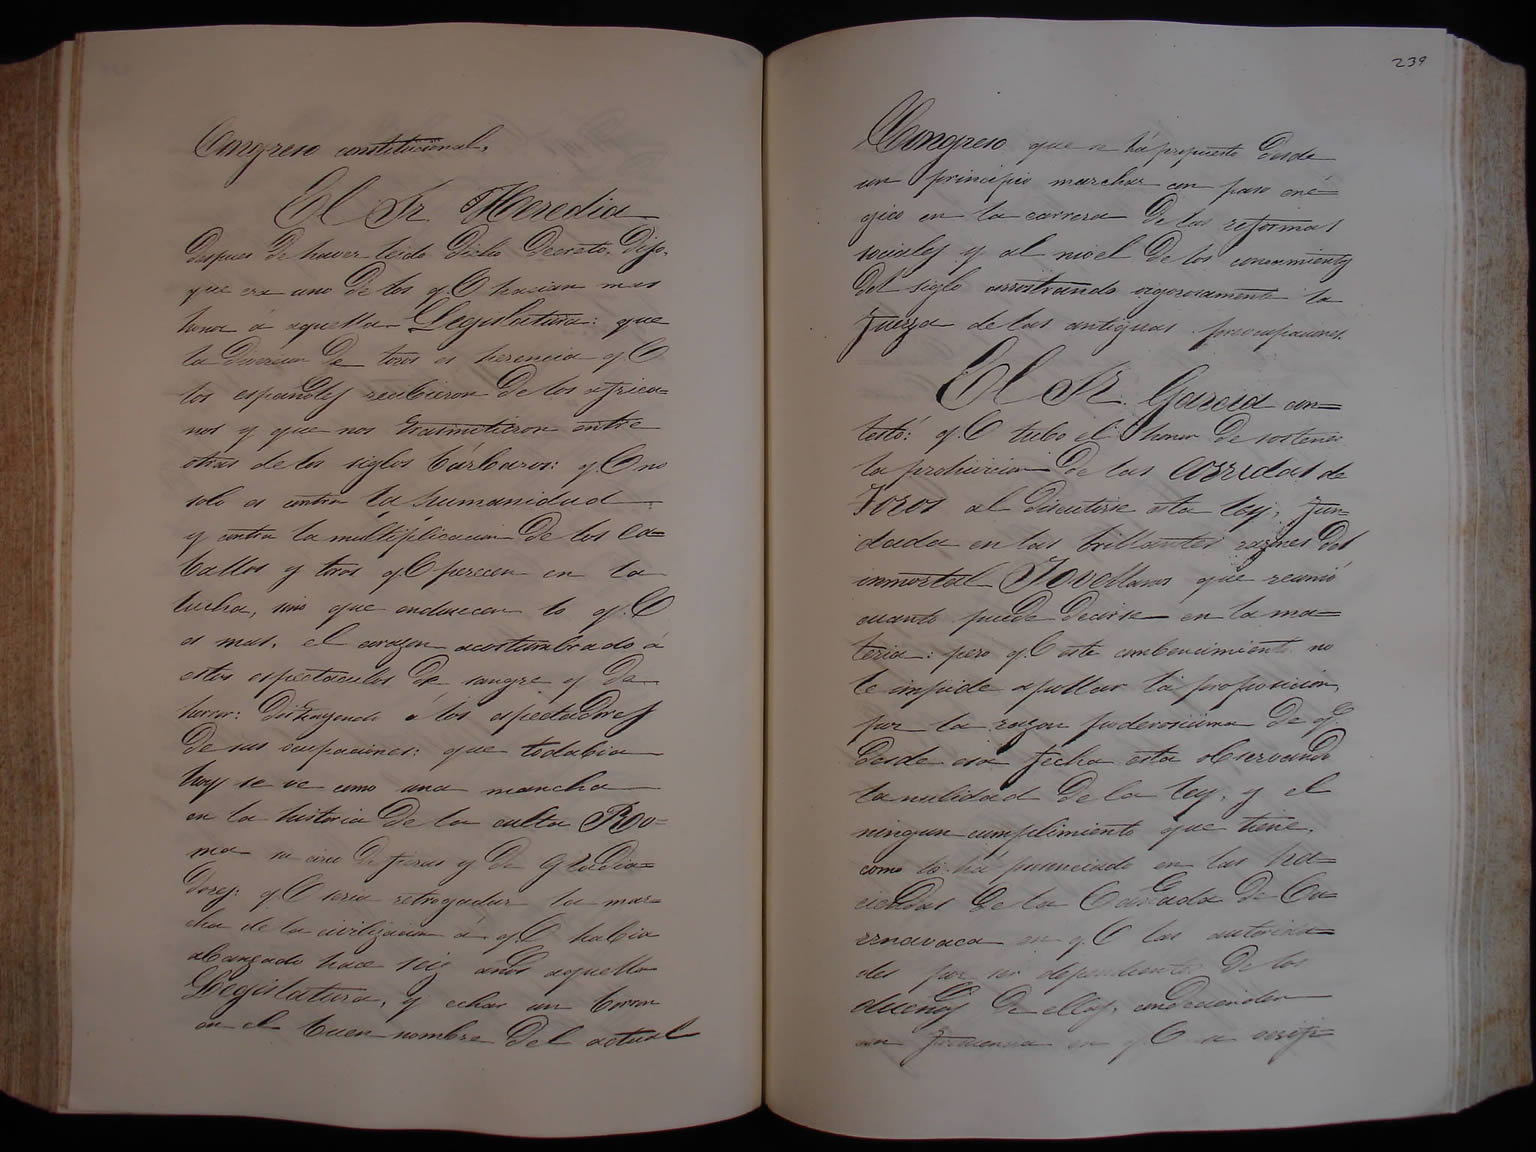 Congreso constitucional.
El Sr. Heredia
despues de haver leido dicho Decreto. Dijo.
que era uno de los q.e hacian mas
honor á aquella Legislatura: que
la diversion de toros es herencia q.e
los españoles recibieron de los africa=
nos y que nos trasmitieron entre
otras de los siglos bárbaros: q.e no
solo es contra la humanidad
y contra la multiplicacion de los ca=
ballos y toros q.e perecen en la
lucha, sino que endurecen lo q.e
es mas, el corazon acostumbrado á
estos espectaculos de sangre y de
horror: distrayendo á los espectadores
de sus ocupaciones: que todabia
hoy se ve como una mancha
en la historia de la culta Ro=
ma su circo de fieras y de gladia=
dores: q.e seria retrogradar la mar=
cha de la civilizacion á q.e habia
abanzado hace seis años aquella
Legislatura, y echar un borron
en el buen nombre del actual
239
Congreso que se há propuesto desde
un principio marchar con paso enér=
gico en la carrera de las reformas
sociales y al nivel de los conocimientos
del siglo arrostrando vigorosamente la
fuerza de las antiguas preocupaciones.
El Sr. Garcia con=
testó: q.e tubo el honor de sostener
la prohivicion de las corridas de
Toros al discutirse esta ley, fun=
dada en las brillantes razones del
inmortal Jovellanos que reunió
cuanto puede decirse en la ma=
teria: pero q.e este combencimiento no
le impide apollar la proposicion,
por la razon poderosisima de q.e
desde esa fecha esta observando
la nulidad de la ley, y el
ningun cumplimiento que tiene,
como lo há presenciado en las ha=
ciendas de la Cañada de Cu=
ernavaca en q.e las autorida=
des por ser dependientes de los
dueños de ellas, condecienden
con frecuencia en q.e se verifi=